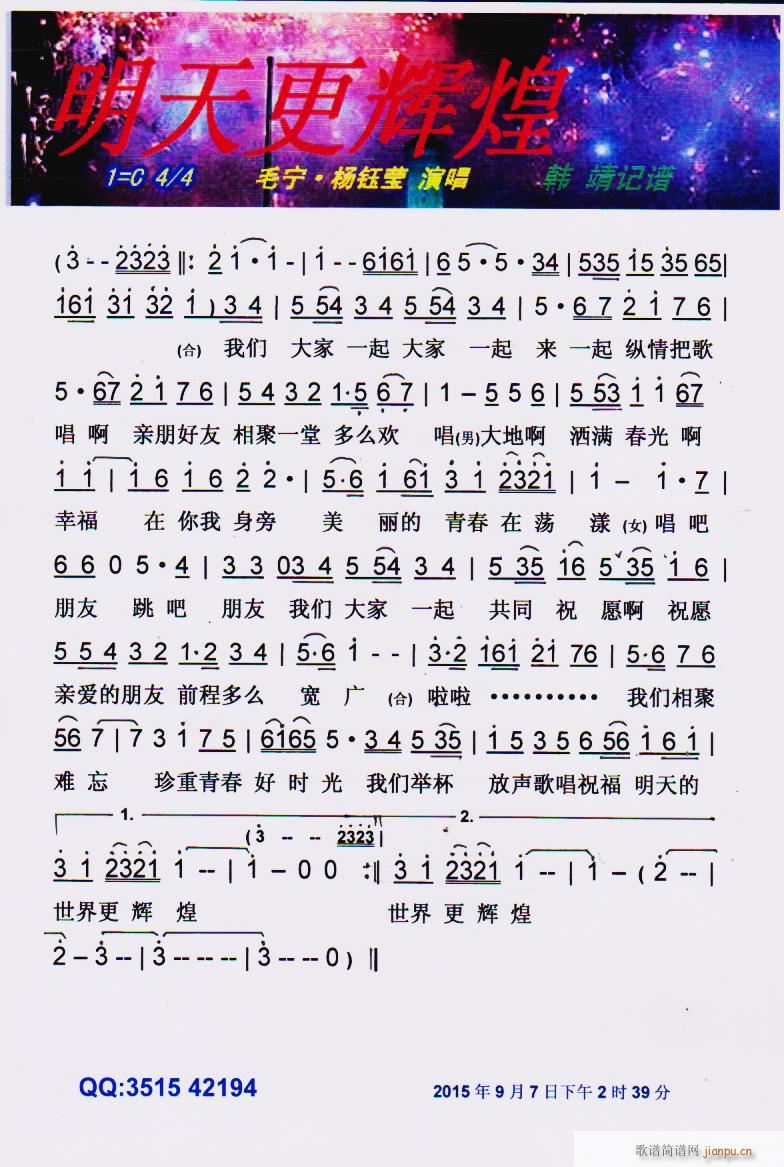 明天更辉煌
1=C 4/4 毛宁·杨钰莹 演唱 韩 靖记谱
(3 - - 2323 ‖: 2 1·1 - | 1 - - 6161 | 6 5·5·34 | 535 15 35 65 |
161 31 32 1 ) 34 | 5 54 34 5 54 34 | 5·67 21 76 |
(合) 我们 大家 一起 大家 一起 来 一起 纵情把歌
5·67 21 76 | 54 32 1·5 67 | 1 - 5 56 | 5 53 1 1 67
唱 啊 亲朋好友 相聚一堂 多么欢 唱(男)大地啊 洒满 春光 啊
1 1 | 1 6 1 6 2 2· | 5·6 1 61 3 1 2321 | 1 - 1·7 |
幸福 在 你我 身旁 美 丽的 青春 在 荡 漾 (女) 唱 吧
6 6 0 5·4 | 3 3 03 4 5 54 3 4 | 5 35 16 5 35 1 6 |
朋友 跳吧 朋友 我们 大家 一起 共同 祝 愿啊 祝愿
5 5 4 3 2 1·2 3 4 | 5·6 1 - - | 3·2 161 21 76 | 5·6 7 6
亲爱的朋友 前程多么 宽 广 (合) 啦啦 ·········· 我们相聚
56 7 | 7 3 1 7 5 | 6165 5·3 4 5 35 | 1 5 3 5 6 56 1 6 1 |
难 忘 珍重青春 好 时 光 我们举杯 放声歌唱祝福 明天的
1. 2.
(3 -- -- 2323 |
3 1 2321 1 -- | 1 - 0 0 :‖ 3 1 2321 1 -- | 1 - ( 2 -- |
世界更 辉 煌 世界 更 辉 煌
2 - 3 -- | 3 -- -- | 3 -- -- 0 ) ‖
QQ:3515 42194 2015 年 9 月 7 日下午 2 时 39 分
歌谱简谱网 jianpu.cn